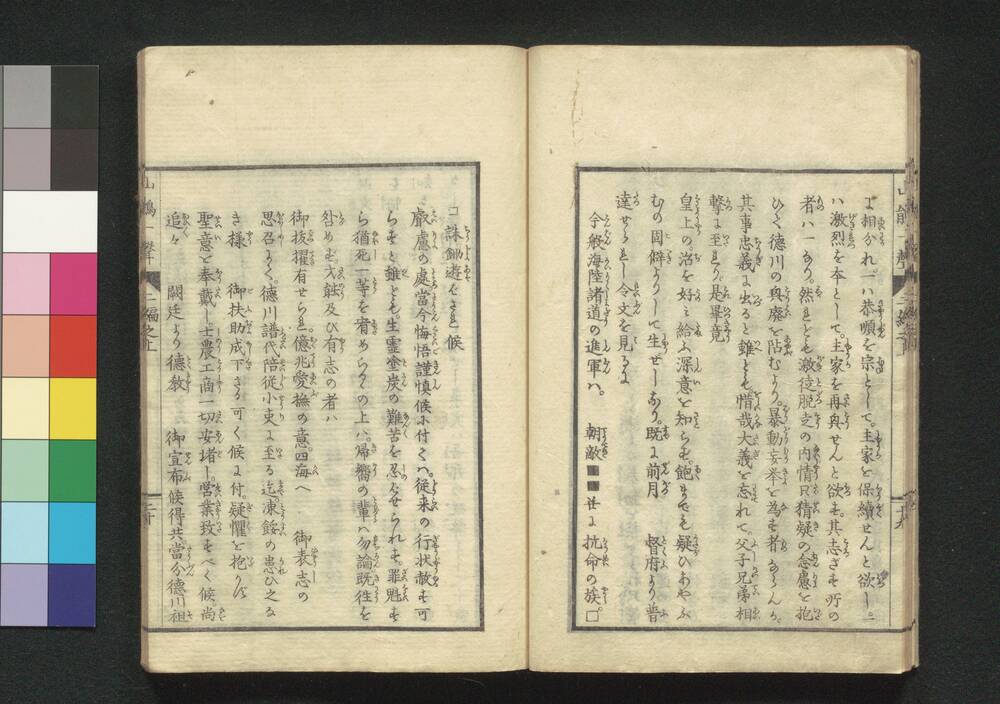 に相分れ一ハ恭順を宗として。主家を保續せんと欲し。二
ハ激烈を本として。主家を再興せんと欲す。其志ざす所の
者ハ一なり然れども激徒脱走の内情只猜疑の念慮を抱
ひく徳川の興廃を占むなり。暴動妄挙を為す者ならんか。
其事忠義に出ると雖ども惜哉大義を忘れて。父子兄弟相
撃に至れり。是畢竟
皇上の。治を好ミ給ふ深意を知らず。飽までも疑ひあやぶ
むの固僻よりして生ぜしなり。既に前月 督府より普
達せられし令文を見るに
今般海陸諸道の進軍ハ。 朝敵■■■廿に抗命の族。□
コ誅鋤遊ばされ候
叡慮の處當今悔悟謹慎候に付てハ。従来の行状赦す可
らずと雖ども。生霊塗炭の難苦を忍ばせられず。罪魁す
ら猶死一等を宥めらるの上ハ。帰嚮の輩ハ勿論既往を
咎めず。才蝕及び有志の者ハ
御抜擢有せられ。億兆愛撫の意。四海へ 御表志の
思召にて。徳川譜代陪従小吏に至る迄。凍餒の患ひ之な
き様 御扶助成下さる可く候に付。疑懼を抱かず
聖意を奉戴し士農工商一切安堵し。営業致すべく候尚
追々 闕廷より徳教 御宣布候得共。當分徳川祖
二編之上
二十